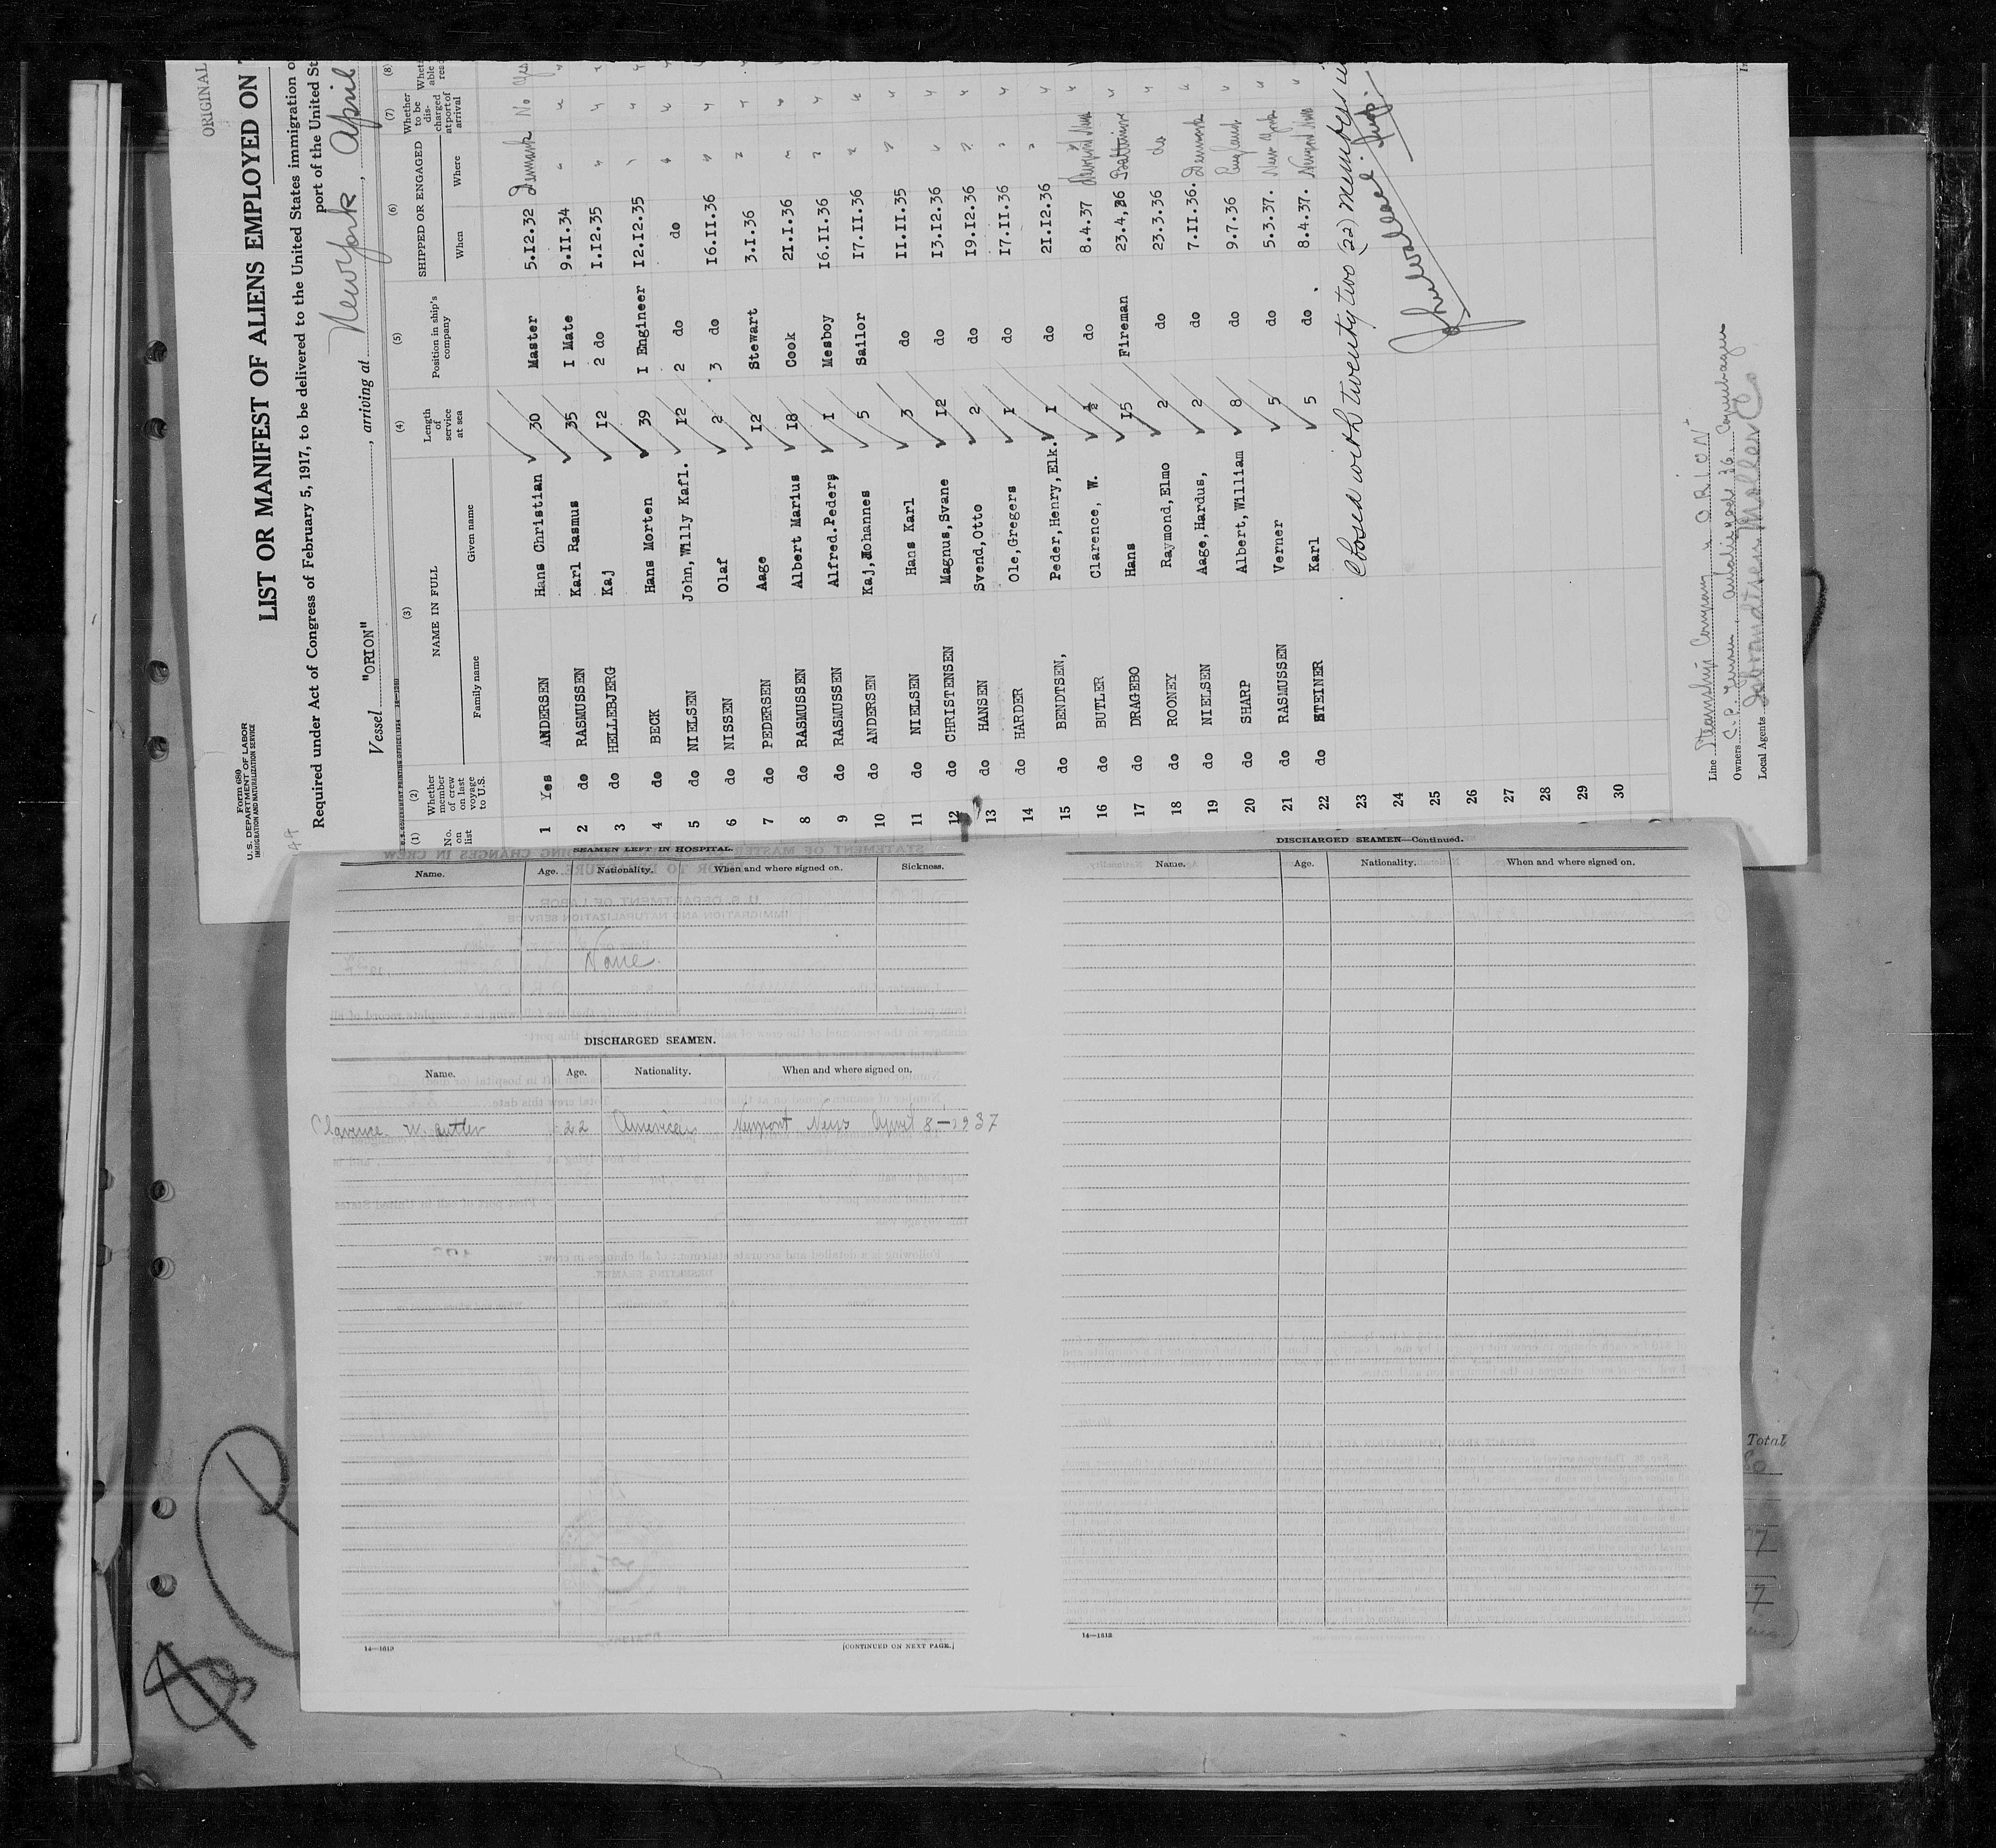 ORIGINAL
Form 680
U. S. DEPARTMENT OF LABOR
IMMIGRATION AND NATURALIZATION SERVICE
LIST OR MANIFEST OF ALIENS EMPLOYED ON
Required under Act of Congress of February 5, 1917, to be delivered to the United States immigration
port of the United St
Vessel "ORION", arriving at New York, April
(1) (2) (3) (4) (5) (6) (7) (8)
No. on list
Whether member of crew on last voyage to U.S.
NAME IN FULL
Family name Given name
Length of service at sea
Position in ship's company
SHIPPED OR ENGAGED
When Where
Whether to be discharged at port of arrival
1 Yes ANDERSEN Hans Christian 30 Master 5.I2.32 Denmark No Yes
2 do RASMUSSEN Karl Rasmus 35 I Mate 9.II.34 "
3 do HELLEBJERG Kaj I2 2 do I.I2.35 "
4 do BECK Hans Morten 39 I Engineer I2.I2.35 "
5 do NIELSEN John, Willy Kafl. I2 2 do do "
6 do NISSEN Olaf 2 3 do I6.II.36 "
7 do PEDERSEN Aage I2 Stewart 3.I.36 "
8 do RASMUSSEN Albert Marius I8 Cook 2I.I.36 "
9 do RASMUSSEN Alfred.Peder I Mesboy I6.II.36 "
10 do ANDERSEN Kaj,Johannes 5 Sailor I7.II.36 "
11 do NIELSEN Hans Karl 3 do II.II.35 "
12 do CHRISTENSEN Magnus,Svane I2 do I3.I2.36 "
13 do HANSEN Svend,Otto 2 do I9.I2.36 "
14 do HARDER Ole,Gregers I do I7.II.36 "
15 do BENDTSEN, Peder,Henry,Elk. I do 2I.I2.36 "
16 do BUTLER Clarence, W. ½ do 8.4.37 Newport News "
17 do DRAGEBO Hans I5 Fireman 23.4.36 Baltimore "
18 do ROONEY Raymond,Elmo 2 do 23.3.36 do "
19 do NIELSEN Aage,Hardus, 2 do 7.II.36. Denmark "
20 do SHARP Albert,William 8 do 9.7.36 England "
21 do RASMUSSEN Verner 5 do 5.3.37. New York "
22 do STEINER Karl 5 do 8.4.37. Newport News "
23
24
25
26
27
28
29
30
Closed with twenty two (22) members in
John Wallace
Line Steamship Company "ORION"
Owners C. P. Jensen, 36. Copenhagen
Local Agents
SEAMEN LEFT IN HOSPITAL.
Name. Age. Nationality. When and where signed on. Sickness.
None
DISCHARGED SEAMEN.
Name. Age. Nationality. When and where signed on.
Clarence W. Butler 22 American Newport News April 8-1937
14—1613
[CONTINUED ON NEXT PAGE.]
DISCHARGED SEAMEN—Continued.
Name. Age. Nationality. When and where signed on.
14—1613
Total